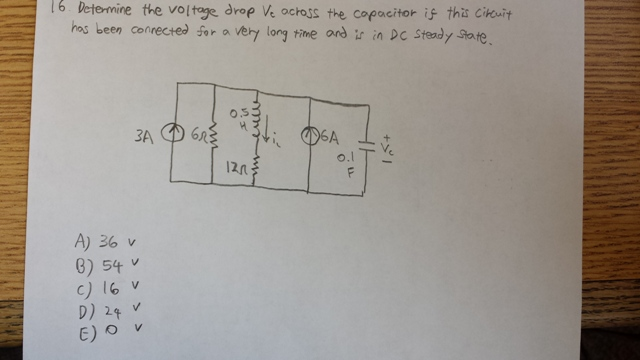 16 Determine the voltage drop Vc across the capacitor if this circuit
has been connected for a very long time and is in DC steady state.
0.5
H
3A 6Ω iL 6A + Vc −
12Ω
0.1
F
A) 36 V
B) 54 V
C) 16 V
D) 24 V
E) 0 V